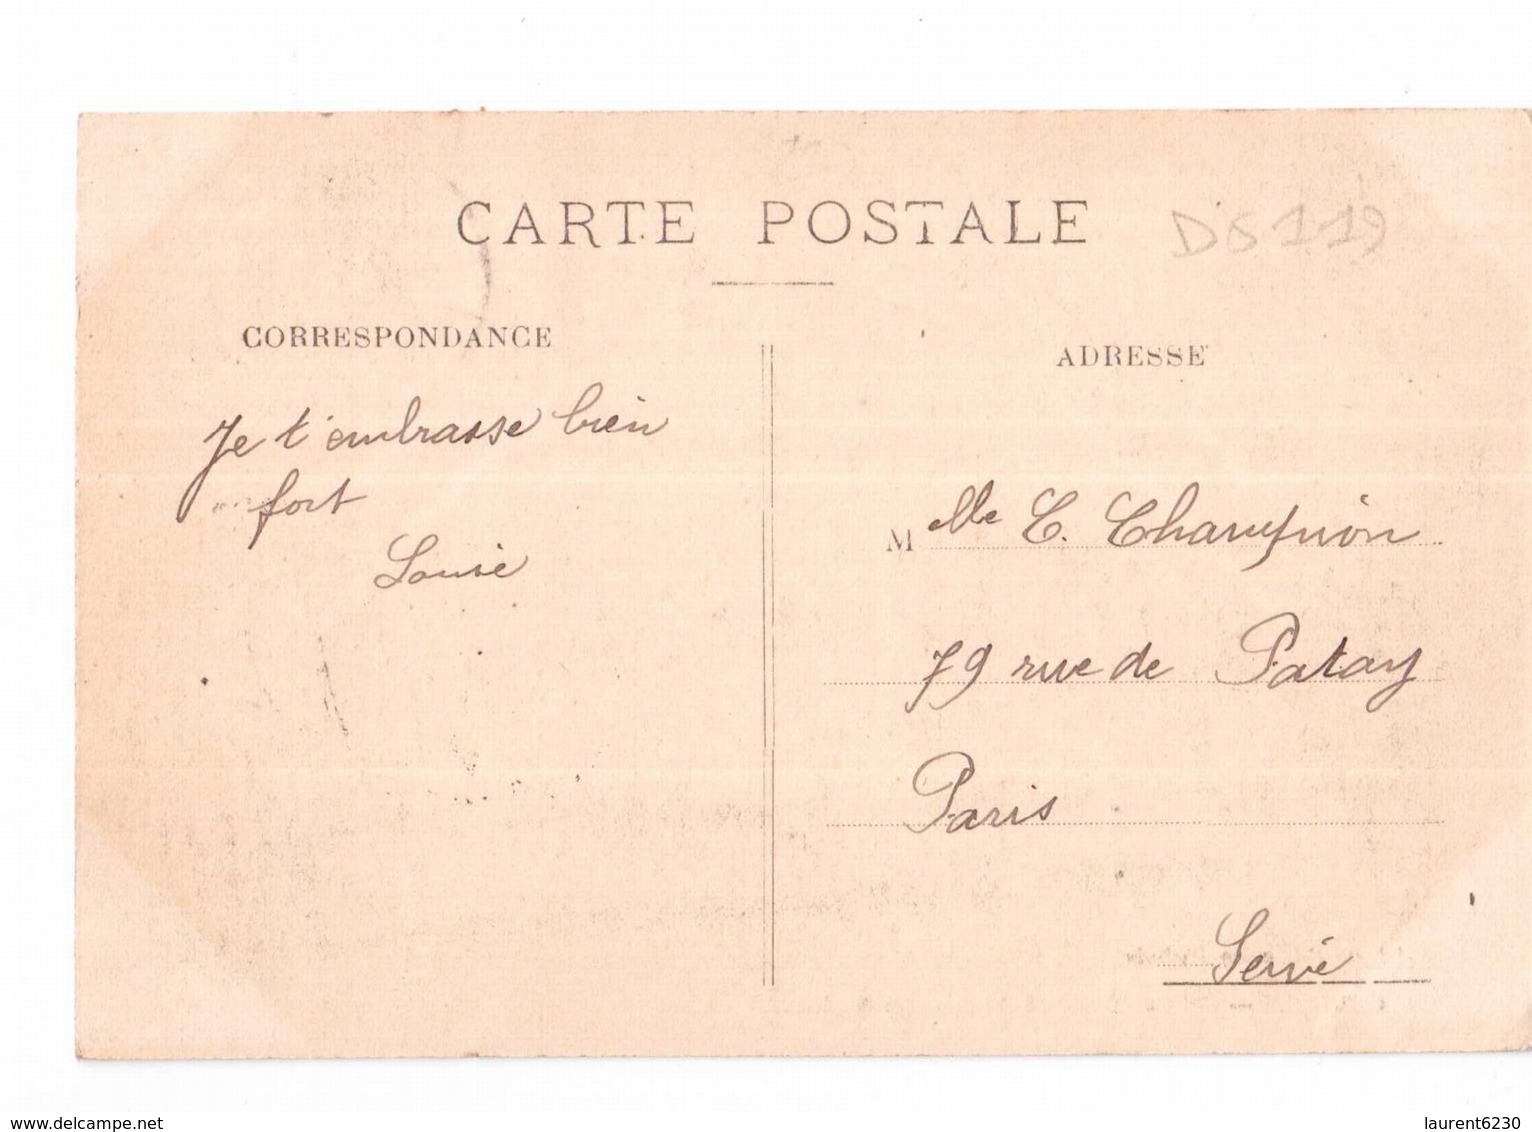 CARTE POSTALE
DS 119
CORRESPONDANCE
Je t'embrasse bien
fort
Louise
ADRESSE
Melle C. Champion
79 rue de Patay
Paris
www.delcampe.net
laurent6230